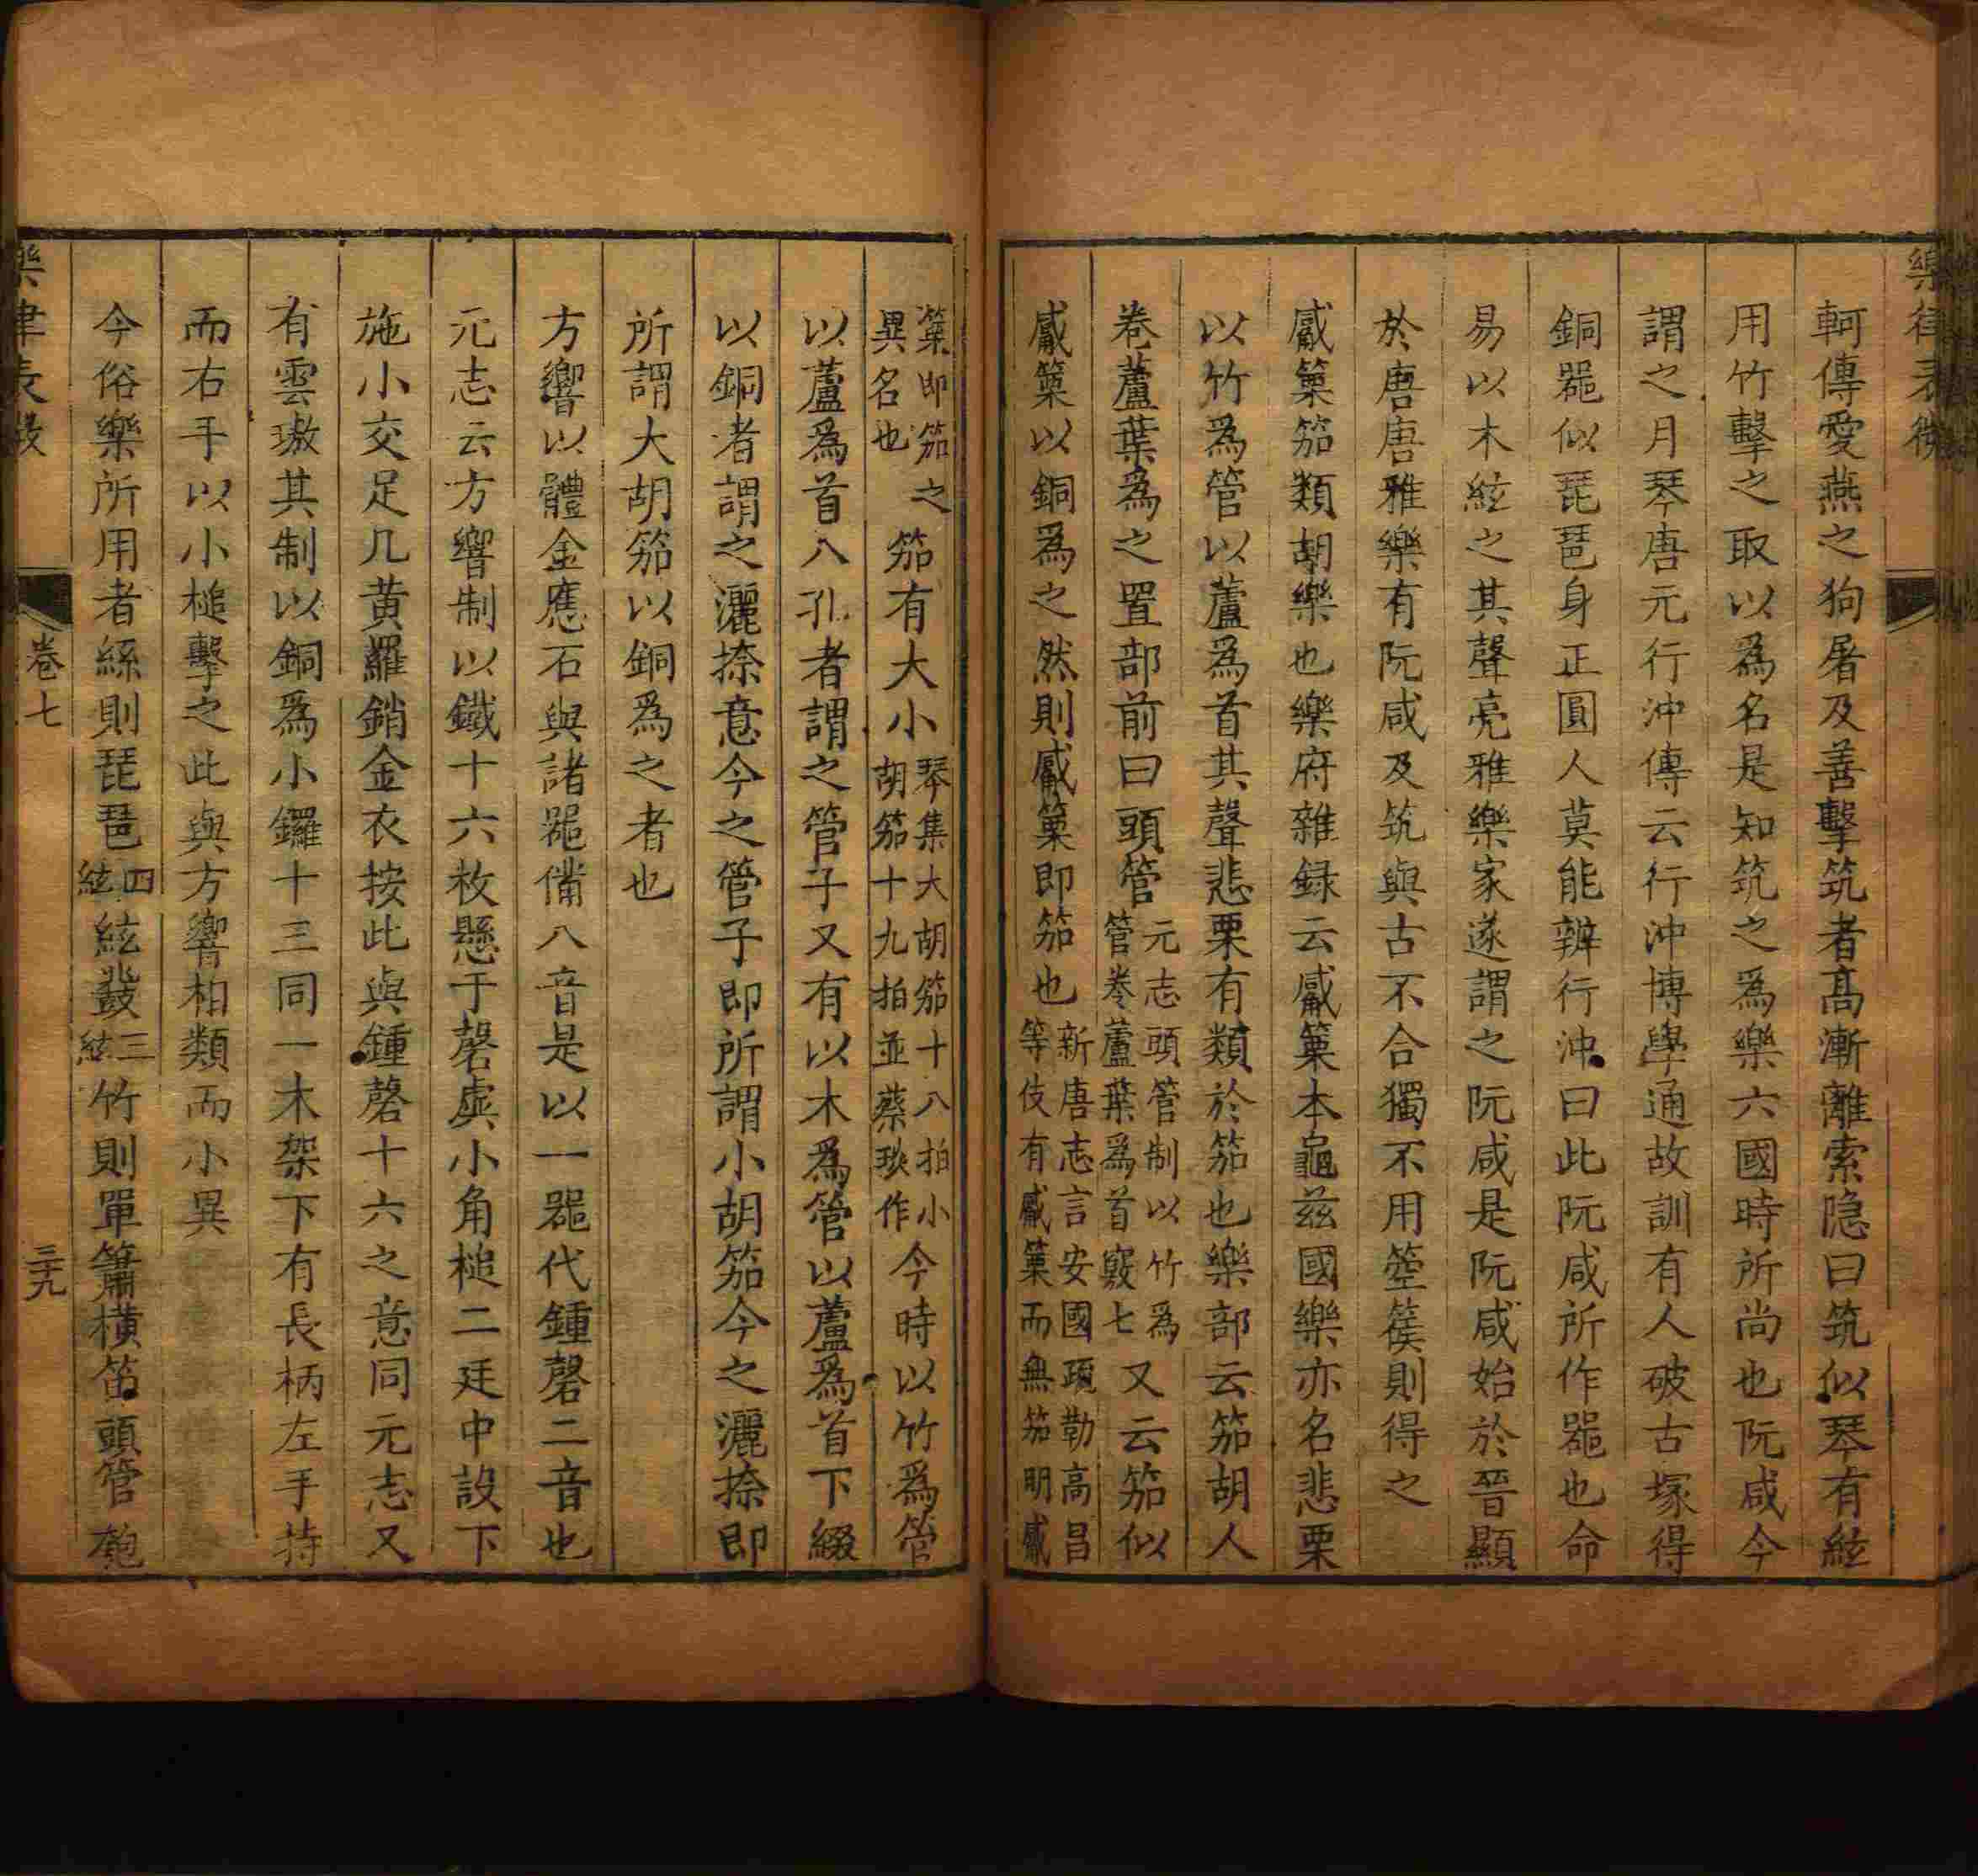 樂律表微
軻傳愛燕之狗屠及善擊筑者髙漸離索隐曰筑似琴有絃
用竹擊之取以爲名是知筑之爲樂六國時所尚也阮咸今
謂之月琴唐元行沖傳云行沖博學通故訓有人破古塚得
銅噐似琵琶身正圓人莫能辨行沖曰此阮咸所作噐也命
易以木絃之其聲亮雅樂家遂謂之阮咸是阮咸始於晉顯
於唐唐雅樂有阮咸及筑與古不合獨不用箜篌則得之
觱篥笳類胡樂也樂府雜録云觱篥本龜兹國樂亦名悲栗
以竹爲管以蘆爲首其聲悲栗有類於笳也樂部云笳胡人
卷蘆葉爲之置部前曰頭管元志頭管制以竹爲管卷蘆葉爲首竅七又云笳似
觱篥以銅爲之然則觱篥即笳也新唐志言安國䟽勒髙昌等伎有觱篥而無笳明觱
篥即笳之異名也笳有大小琴集大胡笳十八拍小胡笳十九拍並蔡琰作今時以竹爲管
以蘆爲首八孔者謂之管子又有以木爲管以蘆爲首下綴
以銅者謂之灑捺意今之管子即所謂小胡笳今之灑捺即
所謂大胡笳以銅爲之者也
方響以體金應石與諸噐備八音是以一噐代鍾磬二音也
元志云方響制以鐵十六枚懸于磬虡小角槌二廷中設下
施小交足几黄羅銷金衣按此與鍾磬十六之意同元志又
有雲璈其制以銅爲小鑼十三同一木架下有長柄左手持
而右手以小槌擊之此與方響相類而小異
今俗樂所用者絲則琵琶四絃絃鼗三絃竹則單簫橫笛頭管匏
樂律表微
卷七
三十九